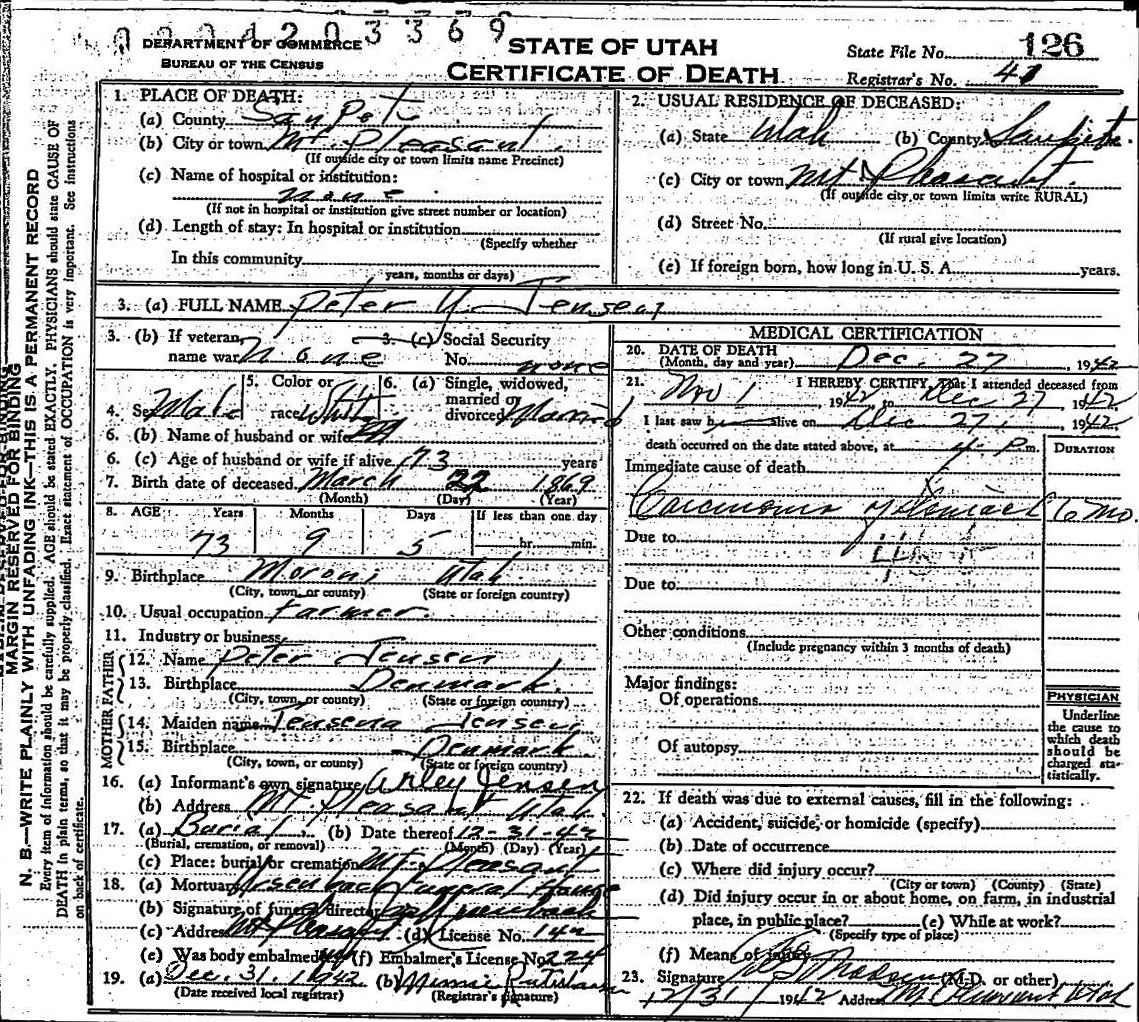 0001203369
DEPARTMENT OF COMMERCE
BUREAU OF THE CENSUS
STATE OF UTAH
CERTIFICATE OF DEATH
State File No. 126
Registrar's No. 41
MARGIN RESERVED FOR BINDING
N. B.—WRITE PLAINLY WITH UNFADING INK—THIS IS A PERMANENT RECORD
Every item of information should be carefully supplied. AGE should be stated EXACTLY. PHYSICIANS should state CAUSE OF
DEATH in plain terms, so that it may be properly classified. Exact statement of OCCUPATION is very important. See instructions
on back of certificate.
1. PLACE OF DEATH:
(a) County San Pete
(b) City or town Mt. Pleasant.
(If outside city or town limits name Precinct)
(c) Name of hospital or institution:
none.
(If not in hospital or institution give street number or location)
(d) Length of stay: In hospital or institution
(Specify whether
In this community
years, months or days)
2. USUAL RESIDENCE OF DECEASED:
(a) State Utah (b) County Sanpete.
(c) City or town Mt Pleasant.
(If outside city or town limits write RURAL)
(d) Street No.
(If rural give location)
(e) If foreign born, how long in U. S. A. years.
3. (a) FULL NAME Peter Y. Jensen
3. (b) If veteran, name war None
3. (c) Social Security No. none
4. Sex Male
5. Color or race White
6. (a) Single, widowed, married or divorced Married
6. (b) Name of husband or wife
6. (c) Age of husband or wife if alive 73 years
7. Birth date of deceased March 22 1869
(Month) (Day) (Year)
8. AGE Years Months Days If less than one day
73 9 5 hr. min.
9. Birthplace Moroni Utah.
(City, town, or county) (State or foreign country)
10. Usual occupation Farmer.
11. Industry or business
FATHER
12. Name Peter Jensen
13. Birthplace Denmark.
(City, town, or county) (State or foreign country)
MOTHER
14. Maiden name Jensena Jensen
15. Birthplace Denmark
(City, town, or county) (State or foreign country)
16. (a) Informant's own signature Anley Jensen
(b) Address Mt. Pleasant Utah
17. (a) Burial (b) Date thereof 12-31-42
(Burial, cremation, or removal) (Month) (Day) (Year)
(c) Place: burial or cremation Mt. Pleasant
18. (a) Mortuary Ursenbach Funeral Home
(b) Signature of funeral director Ursenbach
(c) Address Mt Pleasant (d) License No. 142
(e) Was body embalmed (f) Embalmer's License No. 224
19. (a) Dec. 31. 1942 (b) Minnie
(Date received local registrar) (Registrar's signature)
MEDICAL CERTIFICATION
20. DATE OF DEATH
(Month, day and year) Dec. 27, 1942
21. I HEREBY CERTIFY, That I attended deceased from
Nov 1 1942 to Dec 27 1942
I last saw h alive on Dec 27, 1942
death occurred on the date stated above, at 4 P.m.
DURATION
Immediate cause of death
Carcinoma of Stomach 6 Mo.
Due to
Due to
Other conditions
(Include pregnancy within 3 months of death)
Major findings:
Of operations
Of autopsy
PHYSICIAN
Underline
the cause to
which death
should be
charged sta-
tistically.
22. If death was due to external causes, fill in the following:
(a) Accident, suicide, or homicide (specify)
(b) Date of occurrence
(c) Where did injury occur?
(City or town) (County) (State)
(d) Did injury occur in or about home, on farm, in industrial
place, in public place? (e) While at work?
(Specify type of place)
(f) Means of injury
23. Signature Madsen (M.D. or other)
12/31 1942 Address Mt Pleasant Utah